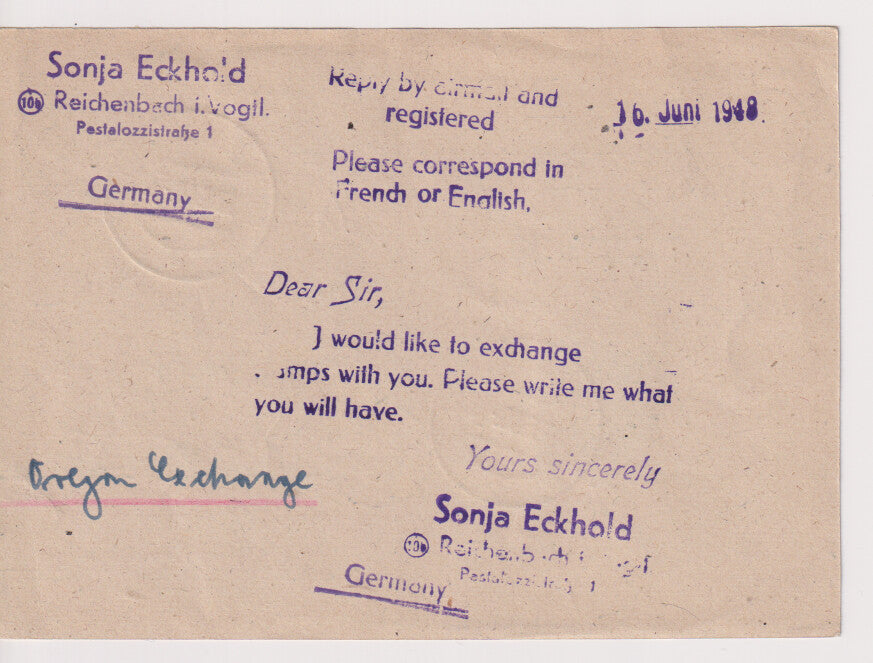 Sonja Eckhold
10b Reichenbach i. Vogtl.
Pestalozzistraße 1
Germany
Reply by airmail and
registered
16. Juni 1948.
Please correspond in
French or English.
Dear Sir,
I would like to exchange
stamps with you. Please write me what
you will have.
Yours sincerely
Oregon Exchange
Sonja Eckhold
10b Reichenbach i. Vogtl.
Pestalozzistraße 1
Germany